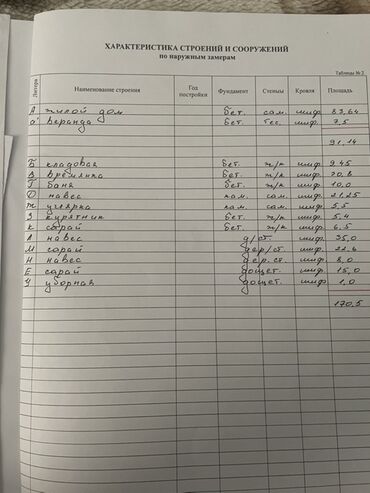 ХАРАКТЕРИСТИКА СТРОЕНИЙ И СООРУЖЕНИЙ
по наружным замерам
Таблица № 2
Литера Наименование строения Год постройки Фундамент Стены Кровля Площадь
А жилой дом бет. сам. шиф. 83,64
а веранда бет. тес. шиф. 7,5
91,14
Б кладовая бет. ж/к шиф. 9.45
В времянка бет. ж/к шиф. 20,8
Г баня бет. ж/к шиф. 10,0
навес кам. сам. шиф. 21.25
Ж кухня кам. сам. шиф. 5,5
З курятник бет. ж/к шиф. 5.4
К сарай бет. ж/к шиф. 6.5
Л навес д/ст. шиф. 35,0
М сарай дер/ст. шиф. 22.6
Н навес дер.ст. шиф. 8,0
Е сарай дощет. шиф. 15,0
У уборная дощет. шиф. 1,0
170,5